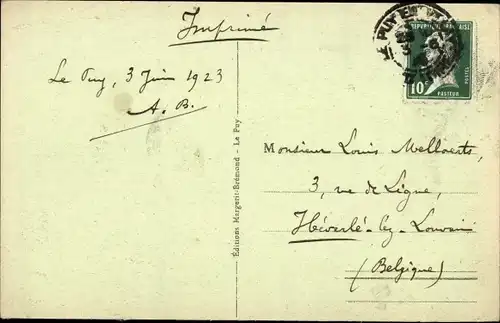 Imprimé
Le Puy, 3 Juin 1923
A. B.
LE PUY EN
REPUBLIQUE FRANÇAISE
POSTES
10c
PASTEUR
Éditions Margerit-Brémond - Le Puy
Monsieur Louis Mellaerts,
3, rue de Ligne,
Héverlé-lez-Louvain
(Belgique)